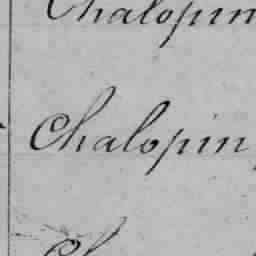 Chalopin
Chalopin